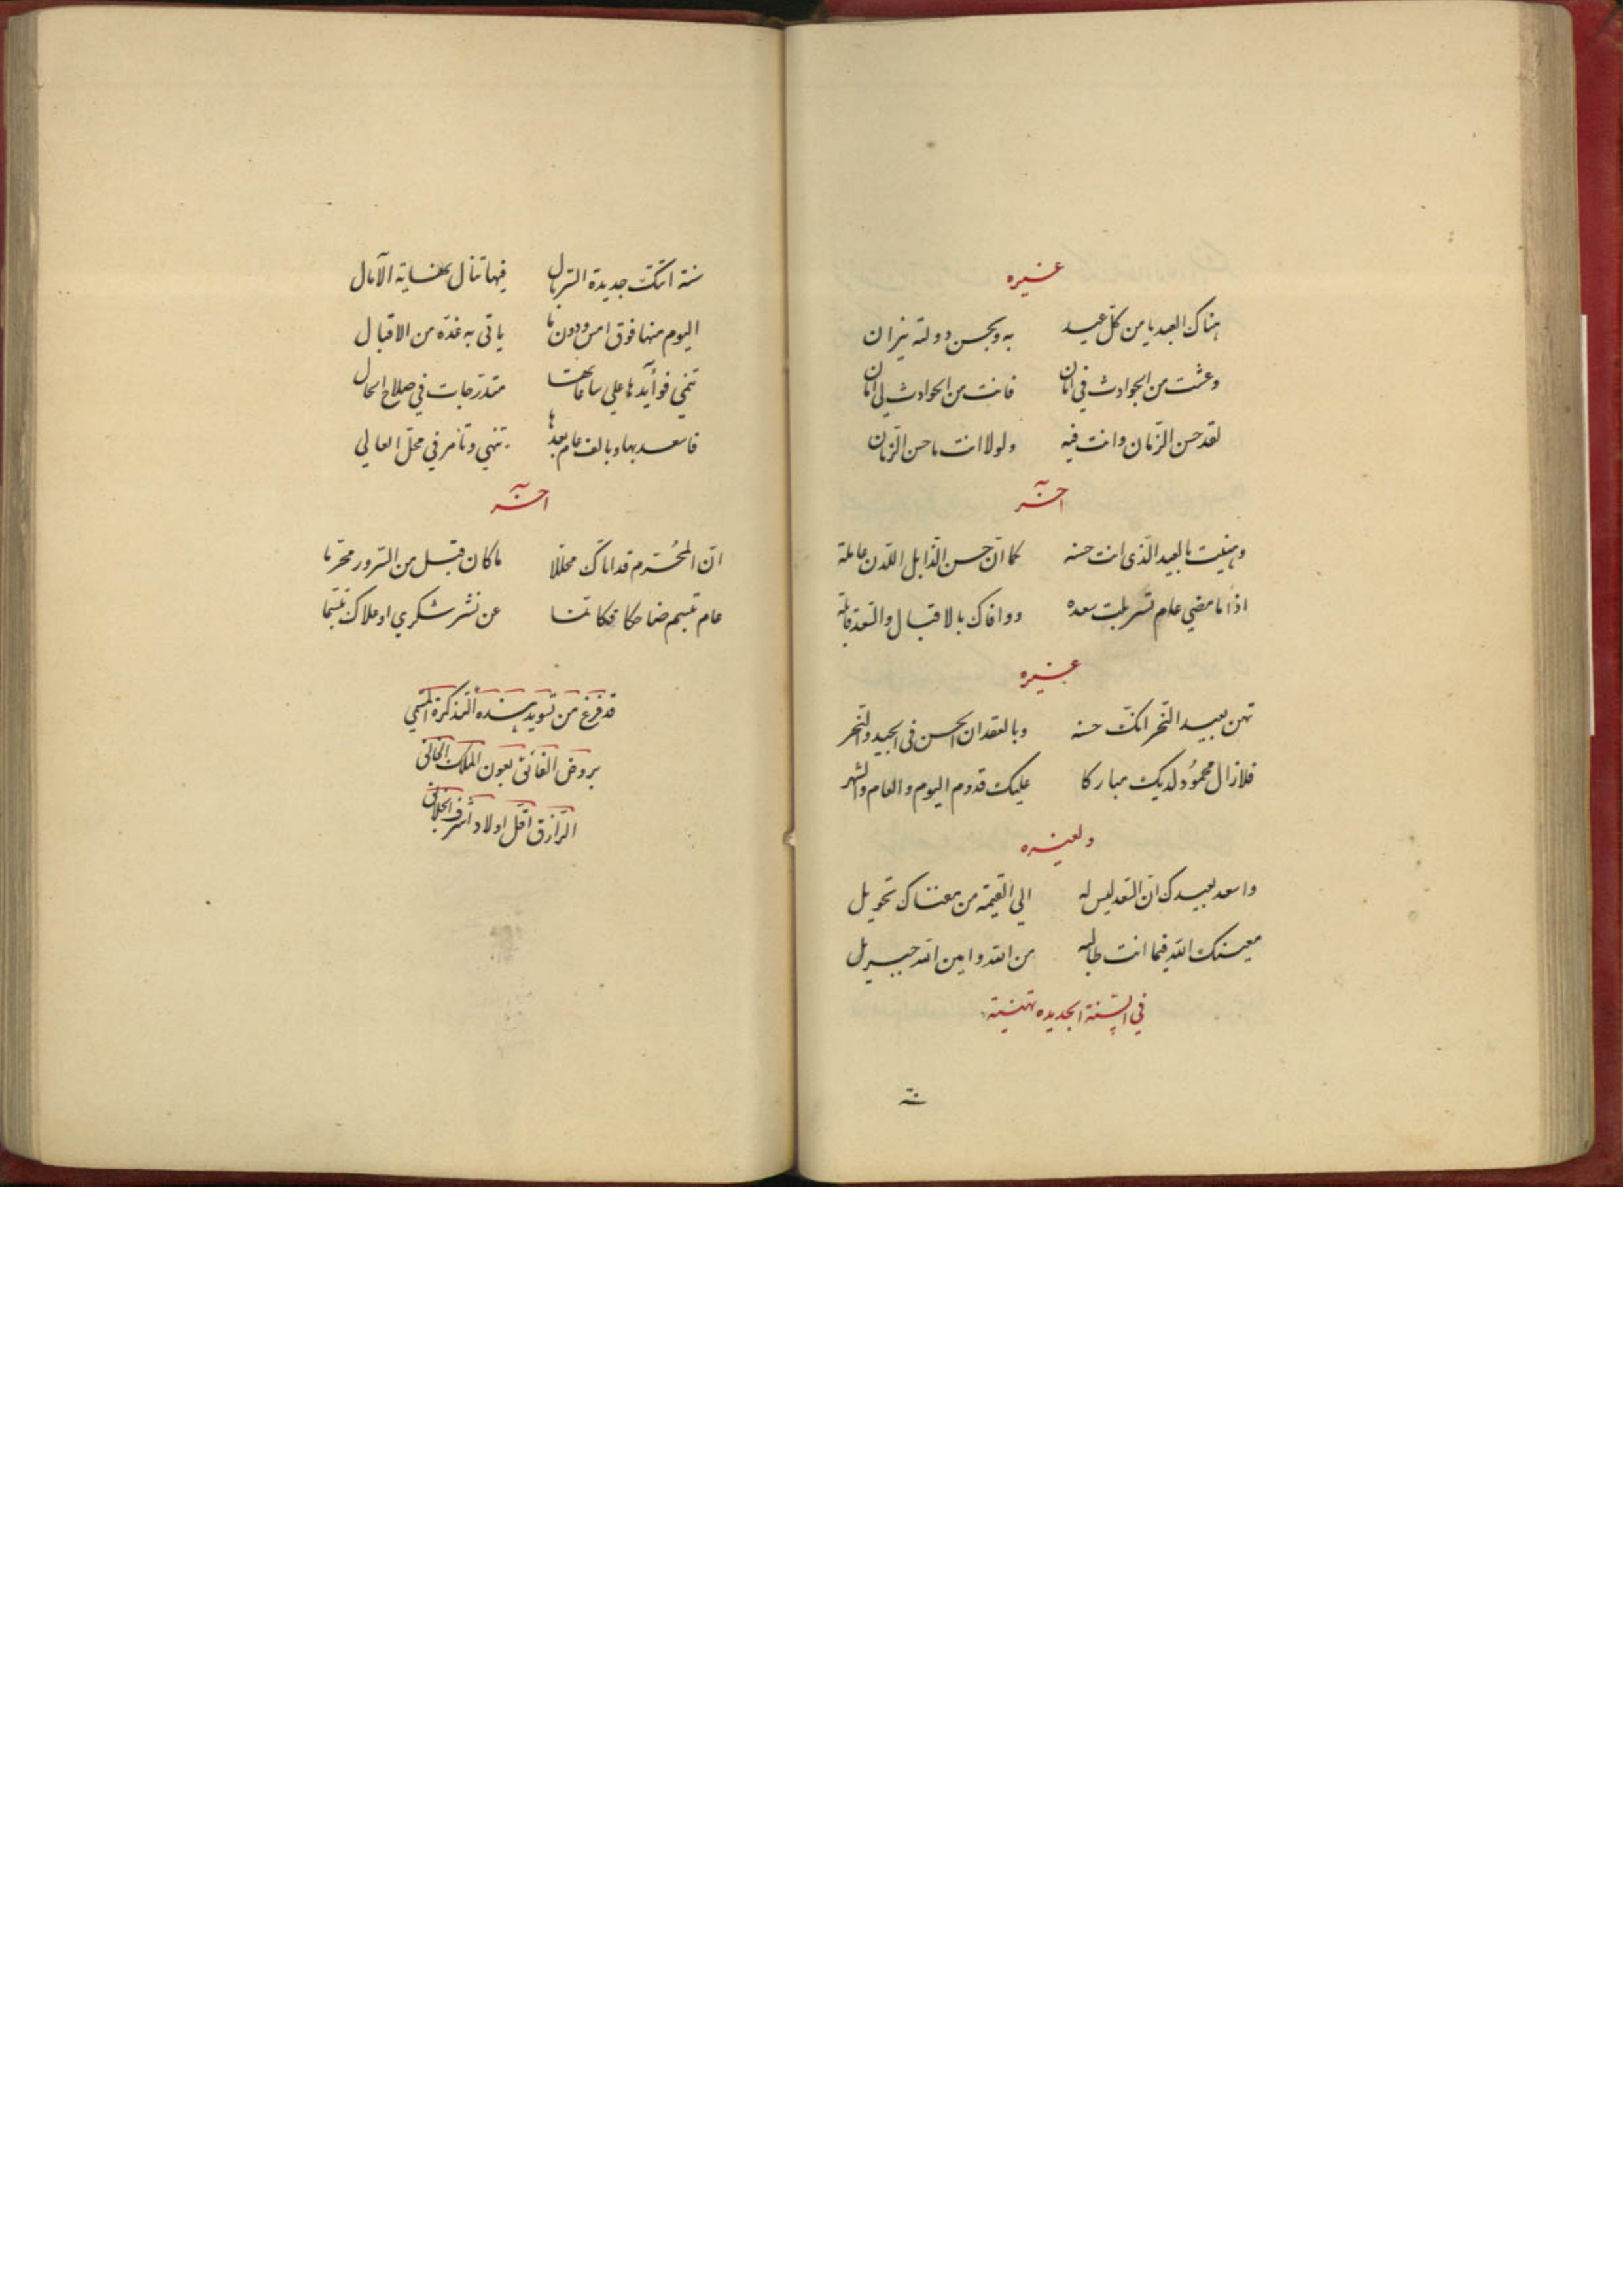 غيره
هناك العيد يا من كل عيد به وبحسن دولته يزان
وعشت من الحوادث في امان فانت من الحوادث لي امان
لقد حسن الزمان وانت فيه ولولا انت ما حسن الزمان
آخر
وهنيت بالعيد الذي انت حسنه كما ان حسن الذابل اللدن عامله
اذا ما مضي عام تسربلت سعده ووافاك بالاقبال والسعد قابله
غيره
تهن بعيد النحر انك حسنه وبالعقد ان الحسن في الجيد والنحر
فلا زال محمود لديك مباركا عليك قدوم اليوم والعام والشهر
ولغيره
واسعد بعيدك ان السعد ليس له الي القيمة من مغناك تحويل
معينك الله فيما انت طالبه من الله وامين الله جبريل
في السنة الجديده تهنيته
سنة
سنة اتتك جديدة السربال فيها تنال لغاية الآمال
اليوم منها فوق امس ودون ما ياتي به غده من الاقبال
تنمي فوآيدها علي ساعاتها متدرجات في صلاح الحال
فاسعد بها وبالف عام بعدها تنهي وتامر في محل العالي
آخر
ان المحرم قد اتاك محللا ما كان قبل من السرور محرما
عام تبسم ضاحكا فكانما عن نشر شكري او علاك تبسما
قد فرغ من تسويد هذه التذكرة المسمي
بروض الفائق بعون الملك الخالق
الرازق اقل اولاد اشرف الخلائق